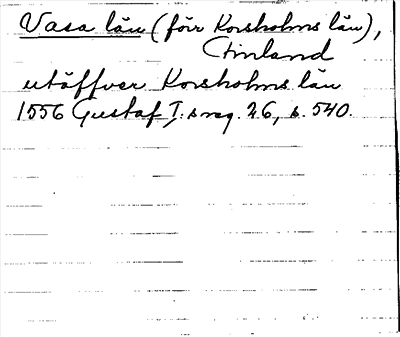 Vasa län (förr Korsholms län),
Finland
utöffver Korsholms län
1556 Gustaf I:s reg. 26, s. 540.